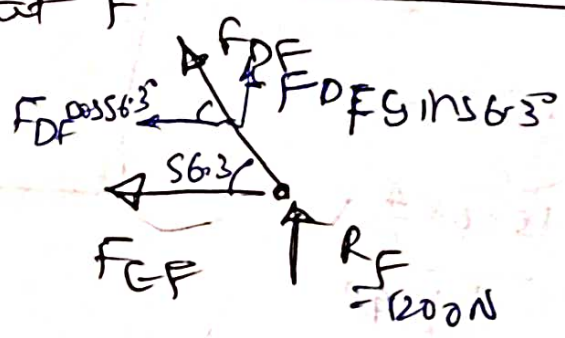 at F
F_DF
F_DF cos56.3°
F_DF sin56.3°
56.3
F_EF
R_F
= 1200N